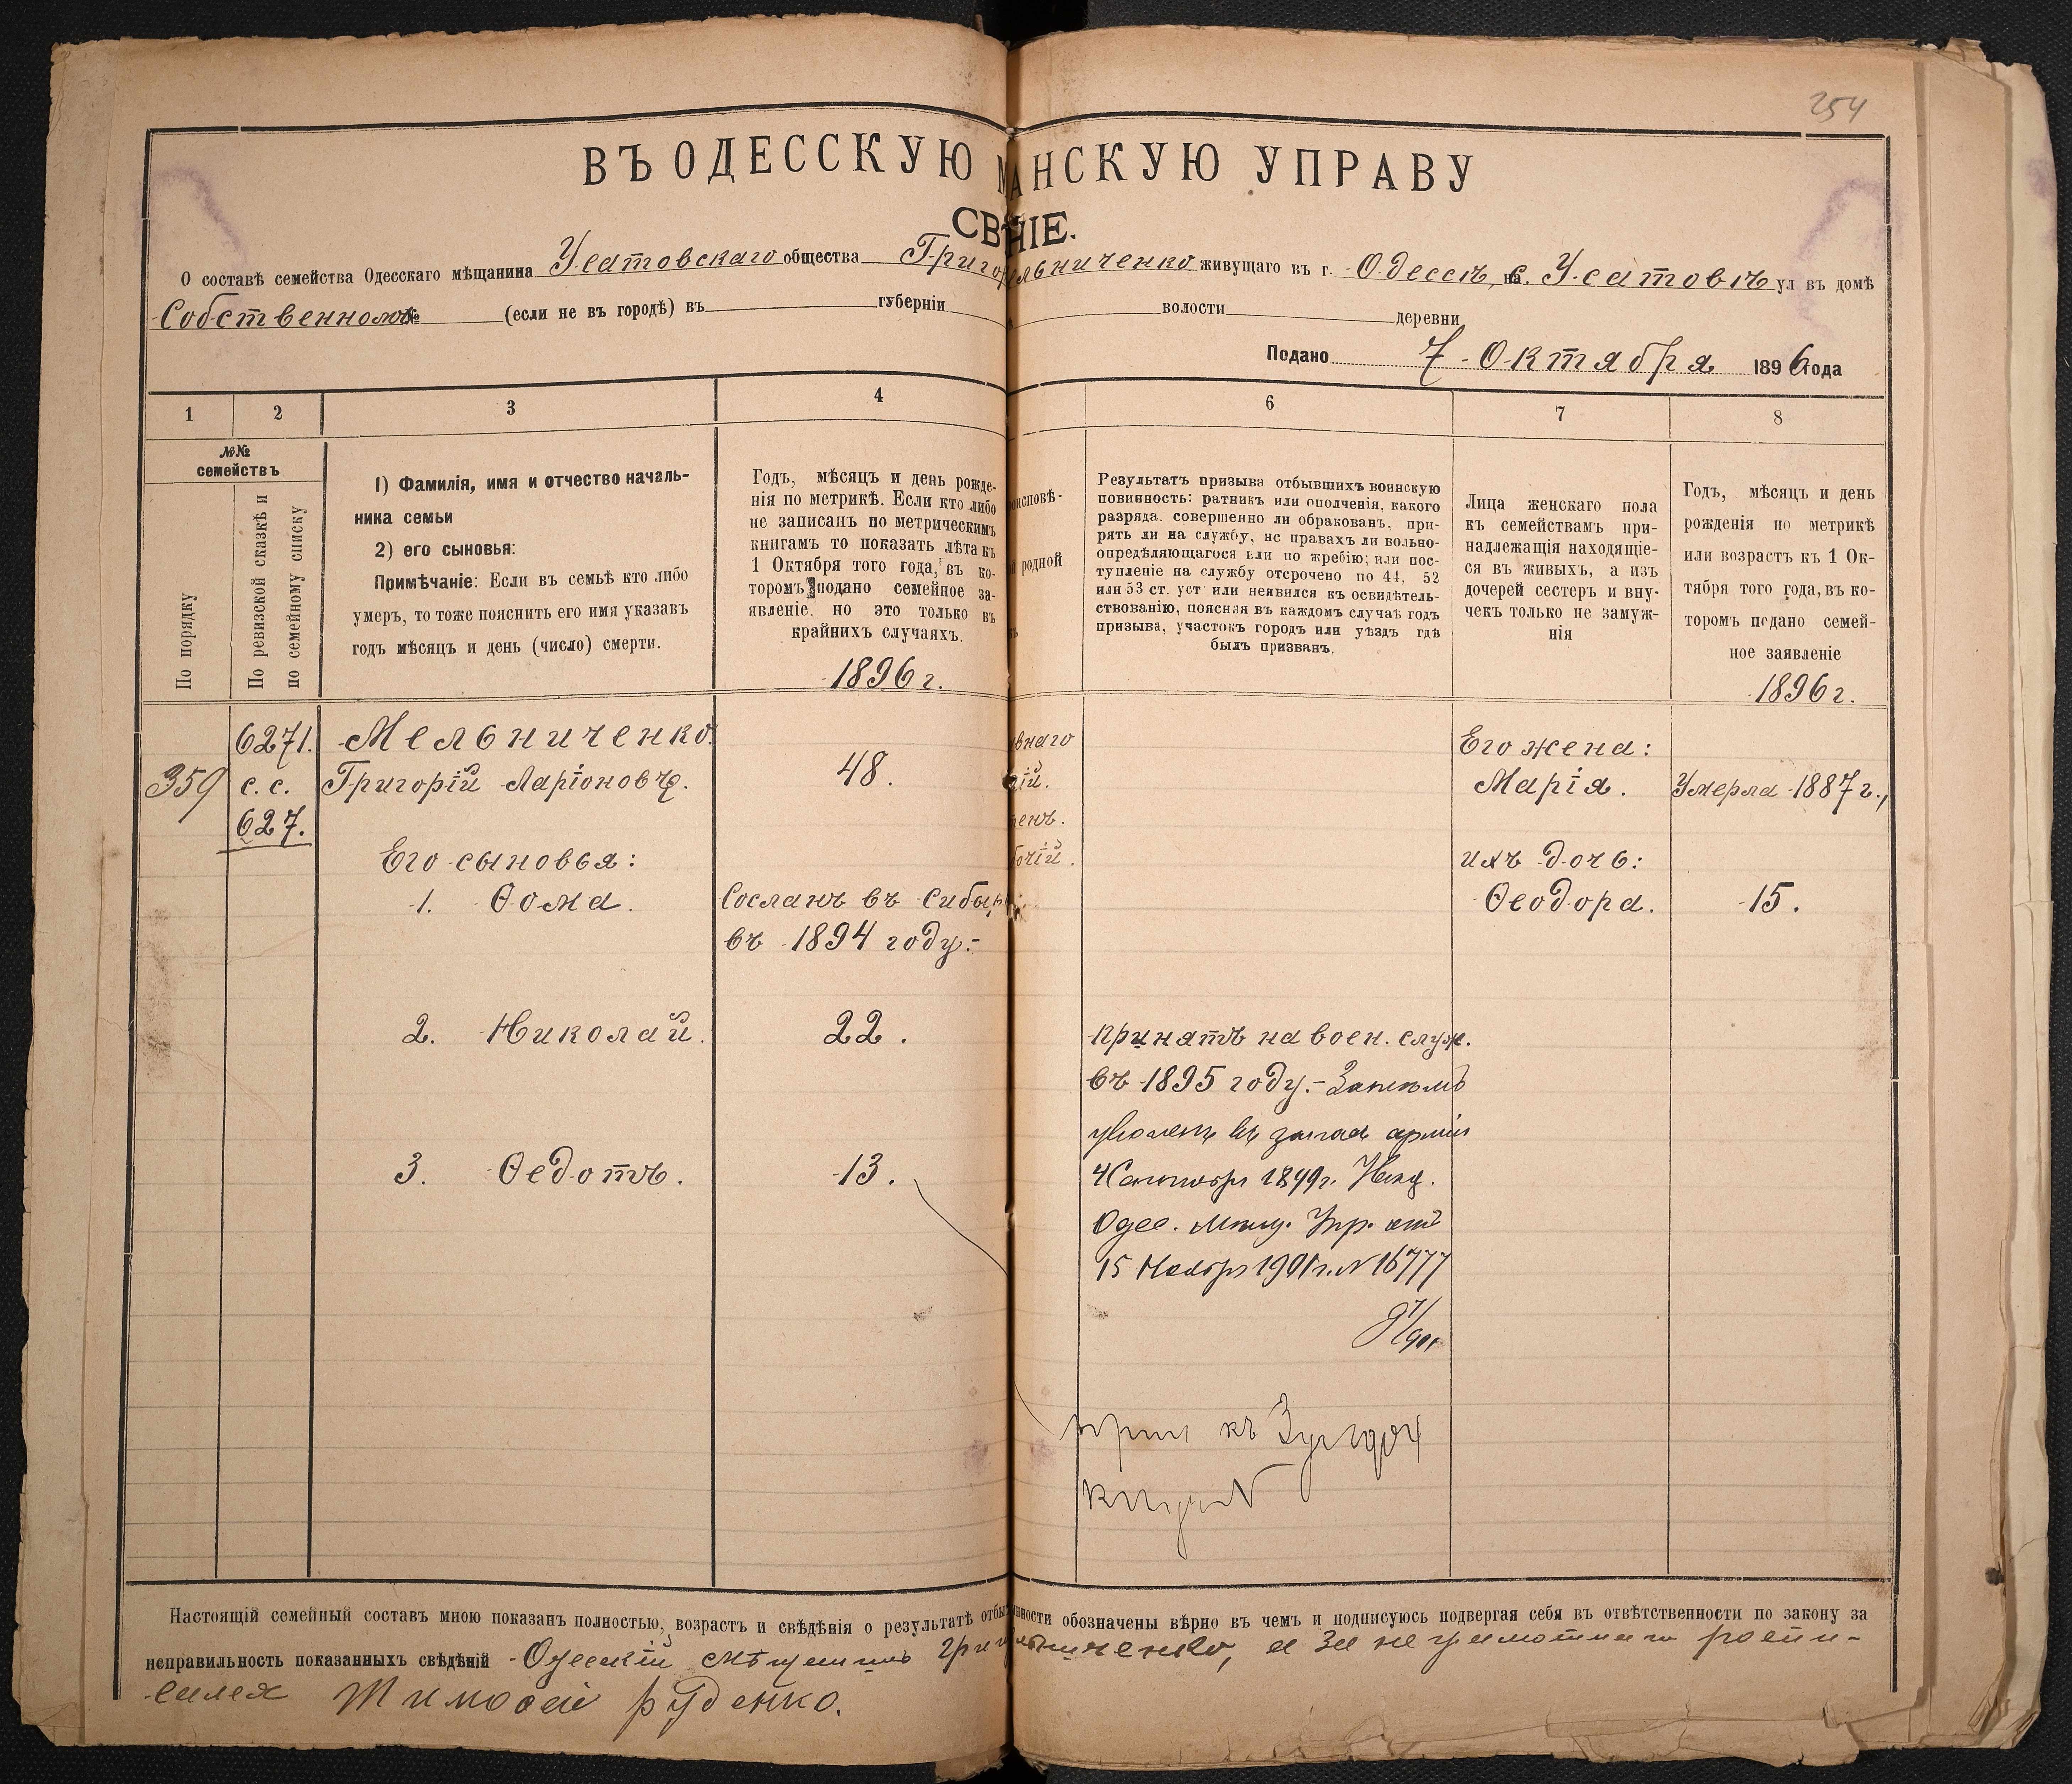 254
ВЪ ОДЕССКУЮ М АНСКУЮ УПРАВУ
СВ НІЕ.
О составѣ семейства Одесскаго мѣщанина Усатовскаго общества Григо ельниченко живущаго въ г. Одессѣ, на с. Усатовѣ ул въ домѣ
Собственномъ № (если не въ городѣ) въ губерніи волости деревни
Подано 7 Октября 1896 года
1 2 3 4 6 7 8
№№ семействъ
По порядку
По ревизской сказкѣ и по семейному списку
1) Фамилія, имя и отчество началь-
ника семьи
2) его сыновья:
Примѣчаніе: Если въ семьѣ кто либо
умеръ, то тоже пояснить его имя указавъ
годъ мѣсяцъ и день (число) смерти.
Годъ, мѣсяцъ и день рожде-
нія по метрикѣ. Если кто либо
не записанъ по метрическимъ
книгамъ то показать лѣта къ
1 Октября того года, въ ко-
торомъ подано семейное за-
явленіе. но это только въ
крайнихъ случаяхъ.
1896 г.
оисповѣ-
родной
Результатъ призыва отбывшихъ воинскую
повинность: ратникъ или ополченія, какого
разряда. совершенно ли обракованъ. при-
рятъ ли на службу, нс правахъ ли вольно-
опредѣляющагося или по жребію; или пос-
тупленіе на службу отсрочено по 44, 52
или 53 ст. уст или неявился къ освидѣтель-
ствованію, поясняя въ каждомъ случаѣ годъ
призыва, участокъ городъ или уѣздъ гдѣ
былъ призванъ.
Лица женскаго пола
къ семействамъ при-
надлежащія находящіе-
ся въ живыхъ, а изъ
дочерей сестеръ и вну-
чекъ только не замуж-
нія
Годъ, мѣсяцъ и день
рожденія по метрикѣ
или возрастъ къ 1 Ок-
тября того года, въ ко-
торомъ подано семей-
ное заявленіе
1896 г.
359
6271.
с. с.
627.
Мельниченко
Григорій Ларіоновъ.
48.
внаго
ій.
енъ.
очій.
Его жена:
Марія. Умерла 1887 г.,
Его сыновья:
1. Ѳома. Сосланъ въ Сибирь
въ 1894 году.-
ихъ дочь:
Ѳеодора. 15.
2. Николай. 22.
принятъ на воен. служ.
въ 1895 году.-
уволенъ въ запас арміи
4 Сентября 1899 г.
Одес. Мѣщ. Упр. отъ
15 Ноября 1901 г. № 16777
3. Ѳедотъ. 13.
къ
Настоящій семейный составъ мною показанъ полностью, возрастъ и свѣдѣнія о результатѣ отбы нности обозначены вѣрно въ чемъ и подписуюсь подвергая себя въ отвѣтственности по закону за
неправильность показанныхъ свѣдѣній Одесскій мѣщанинъ Гри льниченко, а за неграмотнаго роспи-
сался Тимофей Руденко.